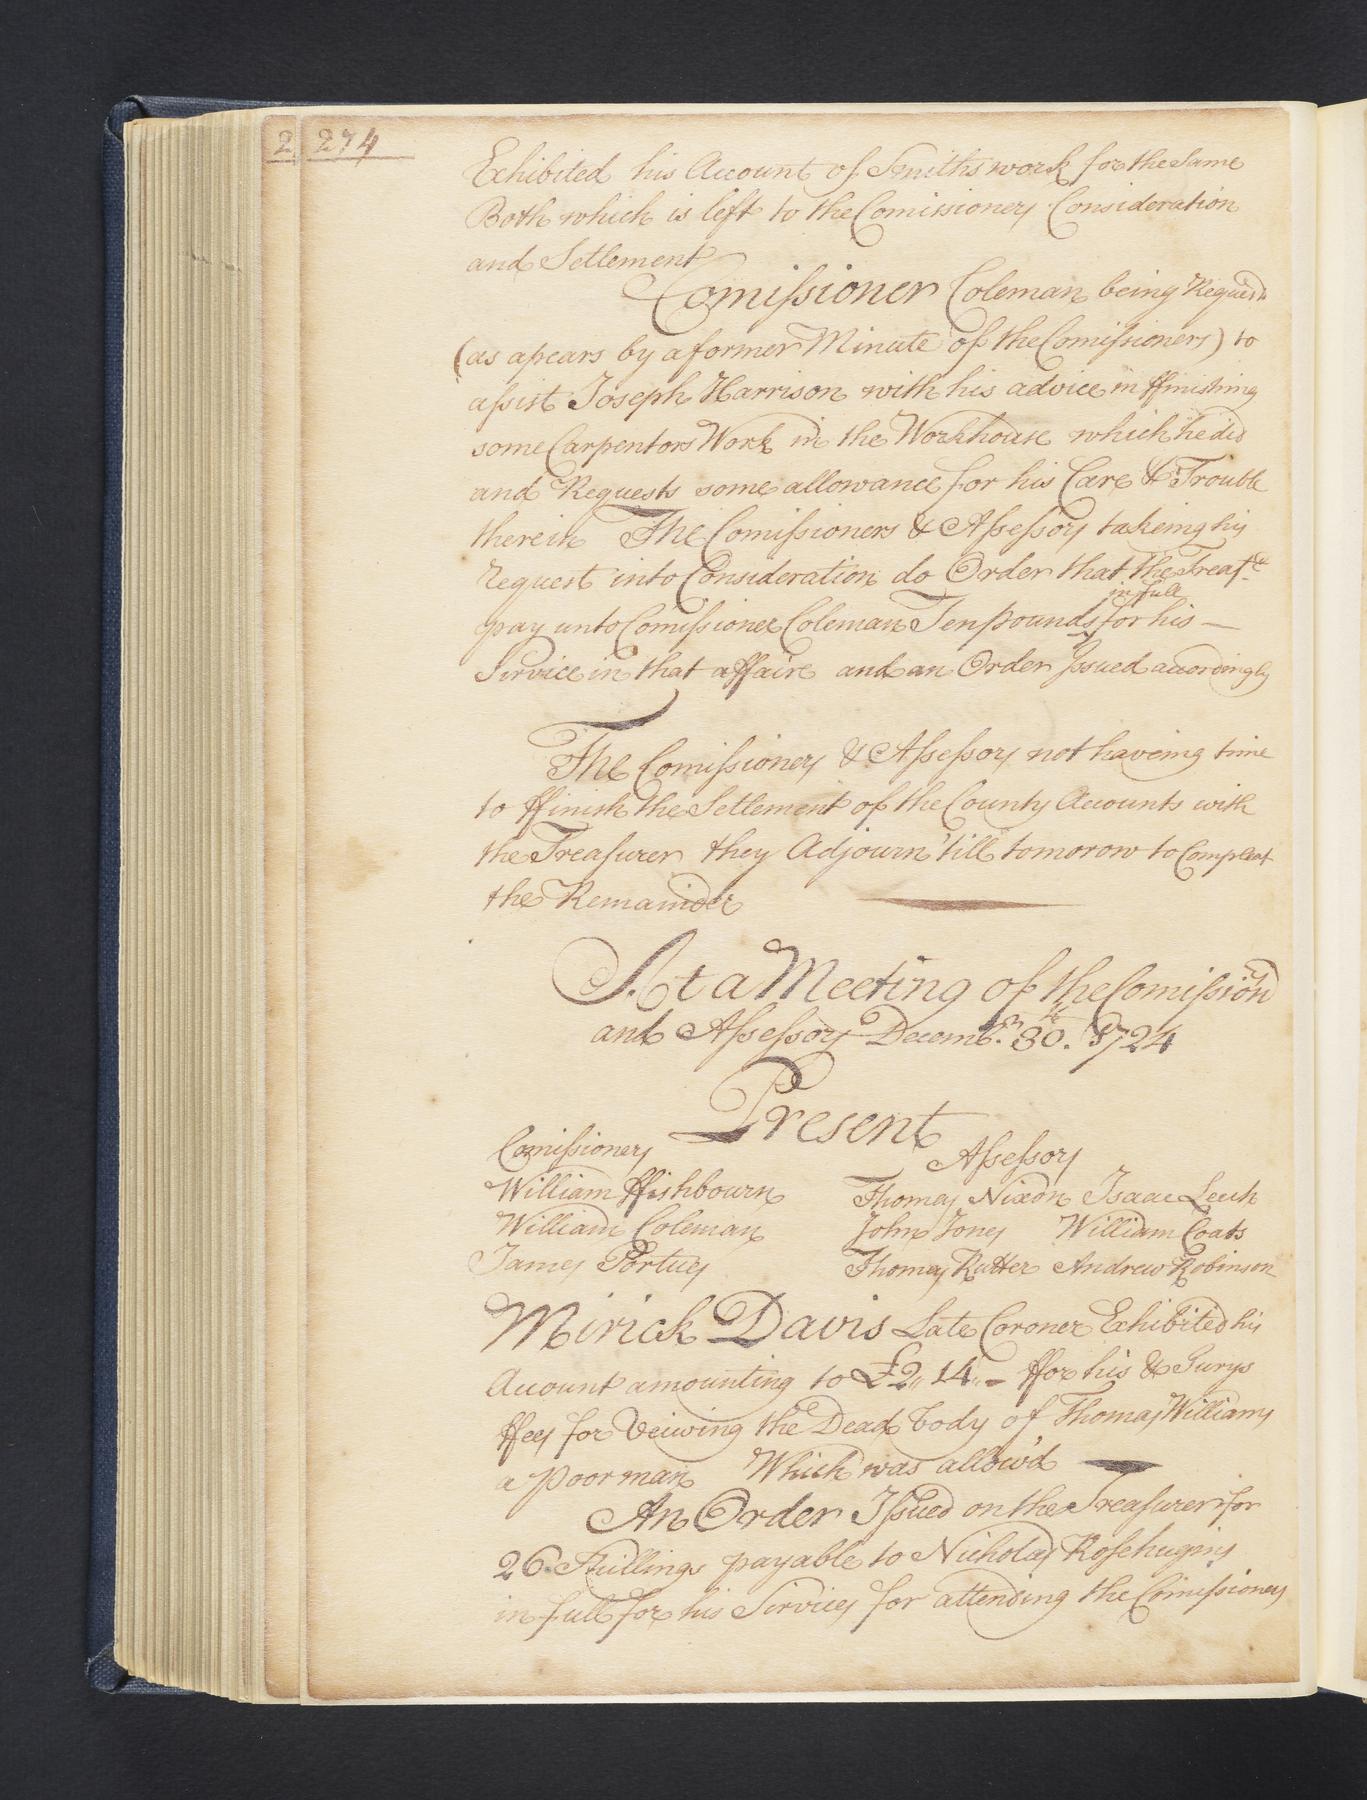 2 274
Exhibited his Account of Smiths work for the Same
Both which is left to the Comissioners Consideration
and Setlement
Comissioner Coleman being Requestd
(as apears by a former Minute of the Comissioners) to
assist Joseph Harrison with his advice in ffinishing
some Carpentors Work in the Workhouse which he did
and Requests some allowance for his Care & Trouble
therein The Comissioners & Assessors takeing his
request into Consideration do Order that the Treasr
in full
pay unto Comissioner Coleman Ten pounds ‸ for his —
Service in that affaire and an Order Issued accordingly
The Comissioners & Assessors not haveing time
to ffinish the Setlement of the County Accounts with
the Treasurer they Adjourn 'till tomorow to Compleat
the Remainder
At a Meeting of the Comissionrs
and Assessors Decembr. 30th. 1724
Present
Comissioners
Assessors
William ffishbourn Thomas Nixon Isaac Leech
William Coleman John Jones William Coats
James Portues Thomas Rutter Andrew Robinson
Mirick Davis Late Coroner Exhibited his
Account amounting to £2,, 14,, – ffor his & Jurys
ffees for Veiwing the Dead body of Thomas Williams
a poor man Which was allow'd
An Order Issued on the Treasurer for
26 Shillings payable to Nicholas Rosehugins
in full for his Services for attending the Comissioners